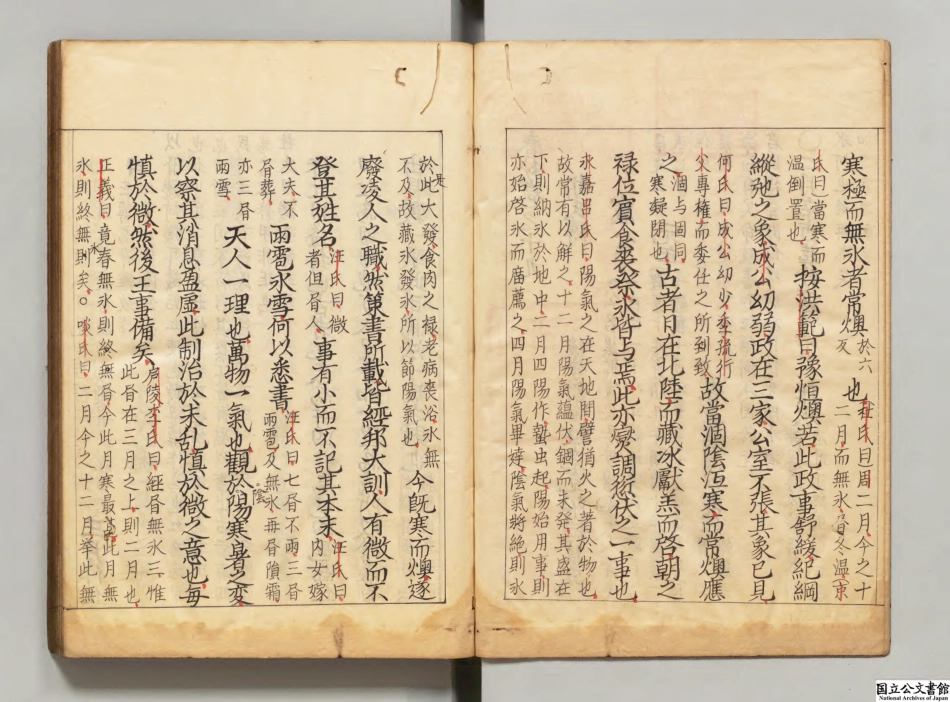 寒極而無氷者常燠於六反也杜氏曰周二月今之十
二月而無氷書冬温
氏曰當寒而
温倒置也
按洪範曰豫恒燠若此政事舒緩紀綱
縱弛之象成公幼弱政在三家公室不張其象已見
何氏曰成公幼少季孫行
父專權而委任之所到致
故當涸陰沍寒而常燠應
之涸与固同
寒凝閉也
古者日在北陸而藏冰獻羔而啓朝之
禄位賓食喪祭氷皆与焉此亦爕調愆伏之一事也
永嘉呂氏曰陽氣之在天地間譬猶火之著於物也
故常有以解之十二月陽氣蘊伏錮而未發其盛在
下則納氷於地中二月四陽作蟄虫起陽始用事則
亦始啓氷而庿薦之四月陽氣畢達陰氣將絶則氷
於是大發食肉之禄老病喪浴氷無
不及故藏氷發氷所以節陽氣也
今旣寒而燠遂
廢凌人之職然策書所載皆經邦大訓人有微而不
登其姓名汪氏曰微
者但書人
事有小而不記其本末汪氏曰
内女嫁
大夫不
書葬
雨雹氷雪何以悉書汪氏曰七書不雨三書
雨雹及無氷毎書隕霜
亦三書
雨雪
天人一理也萬物一氣也觀於陰陽寒暑之変
以察其消息盈虛此制治於未乱慎於微之意也毎
慎於微然後王事備矣廬陵李氏曰經書無氷三惟
此書在三月之上則二月也
正義曰竟春無氷則終無書今此月寒最甚此月無
氷則終無氷矣○啖氏曰二月今之十二月举此無
国立公文書館
National Archives of Japan